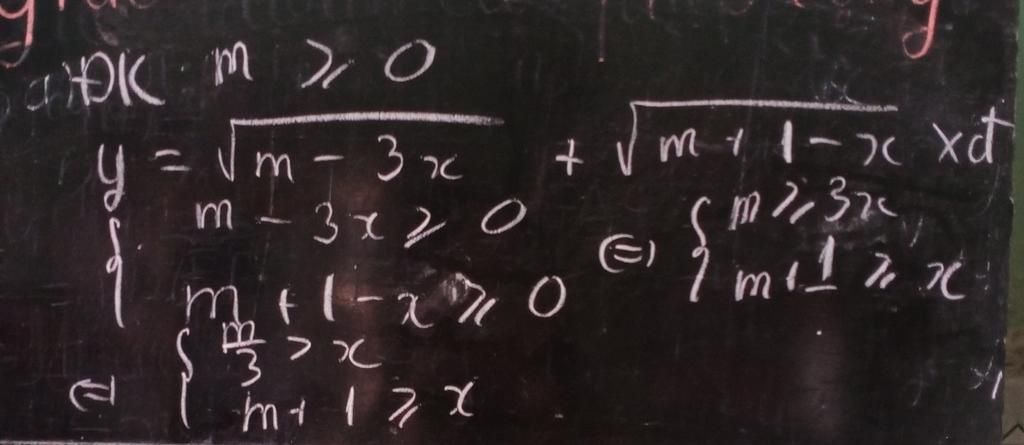 a) ĐK m ⩾ 0
y = √(m - 3x) + √(m + 1 - x) xđ
{ m - 3x ⩾ 0
m + 1 - x ⩾ 0
⇔ { m ⩾ 3x
m + 1 ⩾ x
⇔ { m/3 > x
m + 1 ⩾ x